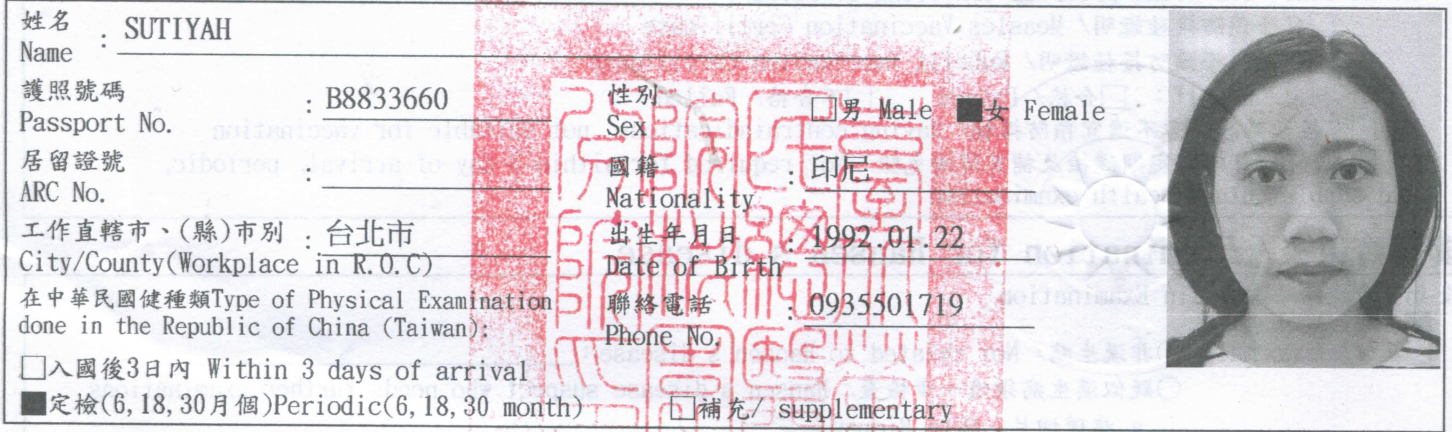 姓名
Name : SUTIYAH
護照號碼
Passport No. : B8833660
居留證號
ARC No. :
工作直轄市、(縣)市別 : 台北市
City/County(Workplace in R.O.C)
在中華民國健種類Type of Physical Examination
done in the Republic of China (Taiwan):
□入國後3日內 Within 3 days of arrival
■定檢(6,18,30月個)Periodic(6,18,30 month) □補充/ supplementary
性別
Sex : □男 Male ■女 Female
國籍
Nationality : 印尼
出生年月日 : 1992.01.22
Date of Birth
聯絡電話 : 0935501719
Phone No.